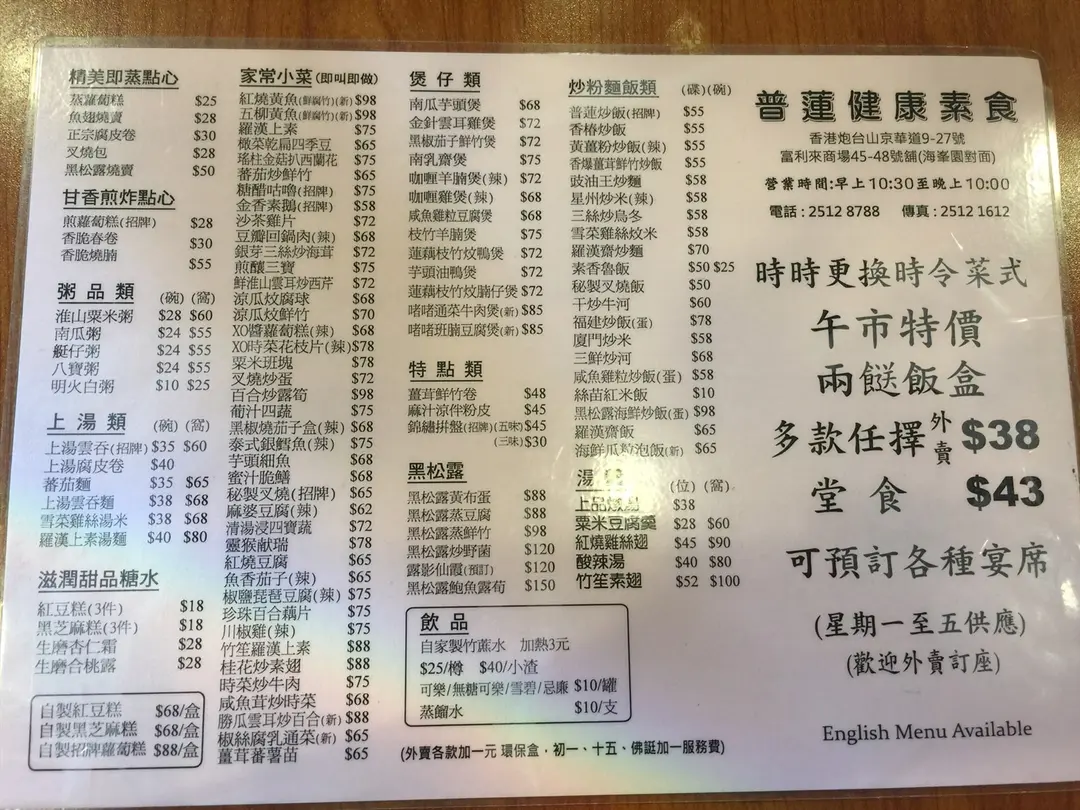 精美即蒸點心
蒸蘿蔔糕 $25
魚翅燒賣 $28
正宗腐皮卷 $30
叉燒包 $28
黑松露燒賣 $50
甘香煎炸點心
煎蘿蔔糕(招牌) $28
香脆春卷 $30
香脆燒腩 $55
粥品類 (碗) (窩)
淮山粟米粥 $28 $60
南瓜粥 $24 $55
艇仔粥 $24 $55
八寶粥 $24 $55
明火白粥 $10 $25
上湯類 (碗) (窩)
上湯雲吞(招牌) $35 $60
上湯腐皮卷 $40
蕃茄麵 $35 $65
上湯雲吞麵 $38 $68
雪菜雞絲湯米 $38 $68
羅漢上素湯麵 $40 $80
滋潤甜品糖水
紅豆糕(3件) $18
黑芝麻糕(3件) $18
生磨杏仁霜 $28
生磨合桃露 $28
自製紅豆糕 $68/盒
自製黑芝麻糕 $68/盒
自製招牌蘿蔔糕 $88/盒
家常小菜(即叫即做)
紅燒黃魚(鮮腐竹)(新) $98
五柳黃魚(鮮腐竹)(新) $98
羅漢上素 $75
欖菜乾扁四季豆 $65
瑤柱金菇扒西蘭花 $75
蕃茄炒鮮竹 $65
糖醋咕嚕(招牌) $75
金香素鵝(招牌) $58
沙茶雞片 $72
豆瓣回鍋肉(辣) $68
銀芽三絲炒海茸 $72
煎釀三寶 $75
鮮淮山雲耳炒西芹 $72
涼瓜炆腐球 $68
涼瓜炆鮮竹 $70
XO醬蘿蔔糕(辣) $68
XO時菜花枝片(辣) $78
粟米班塊 $78
叉燒炒蛋 $72
百合炒露筍 $98
葡汁四蔬 $75
黑椒燒茄子盒(辣) $68
泰式銀鱈魚(辣) $75
芋頭細魚 $68
蜜汁脆鱔 $68
秘製叉燒(招牌) $65
麻婆豆腐(辣) $62
清湯浸四寶蔬 $72
靈猴献瑞 $78
紅燒豆腐 $65
魚香茄子(辣) $65
椒鹽琵琶豆腐(辣) $75
珍珠百合藕片 $75
川椒雞(辣) $75
竹笙羅漢上素 $88
桂花炒素翅 $88
時菜炒牛肉 $75
咸魚茸炒時菜 $68
勝瓜雲耳炒百合(新) $88
椒絲腐乳通菜(新) $65
薑茸蕃薯苗 $65
煲仔類
南瓜芋頭煲 $68
金針雲耳雞煲 $72
黑椒茄子鮮竹煲 $72
南乳齋煲 $75
咖喱羊腩煲(辣) $72
咖喱雞煲(辣) $68
咸魚雞粒豆腐煲 $68
枝竹羊腩煲 $75
蓮藕枝竹炆鴨煲 $72
芋頭油鴨煲 $72
蓮藕枝竹炆腩仔煲 $72
啫啫通菜牛肉煲(新) $85
啫啫班腩豆腐煲(新) $85
特點類
薑茸鮮竹卷 $48
麻汁涼伴粉皮 $45
錦繡拼盤(招牌)(五味) $45
(三味) $30
黑松露
黑松露黃布蛋 $88
黑松露蒸豆腐 $88
黑松露蒸鮮竹 $98
黑松露炒野菌 $120
露影仙霞(預訂) $120
黑松露鮑魚露荀 $150
飲品
自家製竹蔗水 加熱3元
$25/樽 $40/小渣
可樂/無糖可樂/雪碧/忌廉 $10/罐
蒸餾水 $10/支
炒粉麵飯類 (碟)(碗)
普蓮炒飯(招牌) $55
香椿炒飯 $55
黃薑粉炒飯(辣) $55
香爆薑茸鮮竹炒飯 $55
豉油王炒麵 $58
星州炒米(辣) $58
三絲炒烏冬 $58
雪菜雞絲炆米 $58
羅漢齋炒麵 $70
素香魯飯 $50 $25
秘製叉燒飯 $50
干炒牛河 $60
福建炒飯(蛋) $78
廈門炒米 $58
三鮮炒河 $68
咸魚雞粒炒飯(蛋) $58
絲苗紅米飯 $10
黑松露海鮮炒飯(蛋) $98
羅漢齋飯 $65
海鮮瓜粒泡飯(新) $65
湯 (位) (窩)
上品燉湯 $38
粟米豆腐羹 $28 $60
紅燒雞絲翅 $45 $90
酸辣湯 $40 $80
竹笙素翅 $52 $100
(外賣各款加一元 環保盒，初一、十五、佛誕加一服務費)
普蓮健康素食
香港炮台山京華道9-27號
富利來商場45-48號舖(海峯園對面)
營業時間:早上10:30至晚上10:00
電話:2512 8788 傳真:2512 1612
時時更換時令菜式
午市特價
兩餸飯盒
多款任擇 外賣 $38
堂食 $43
可預訂各種宴席
(星期一至五供應)
(歡迎外賣訂座)
English Menu Available